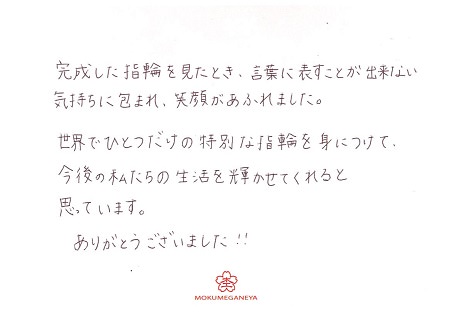 完成した指輪を見たとき、言葉に表すことが出来ない
気持ちに包まれ、笑顔があふれました。
世界でひとつだけの特別な指輪を身につけて、
今後の私たちの生活を輝かせてくれると
思っています。
ありがとうございました!!
MOKUMEGANEYA